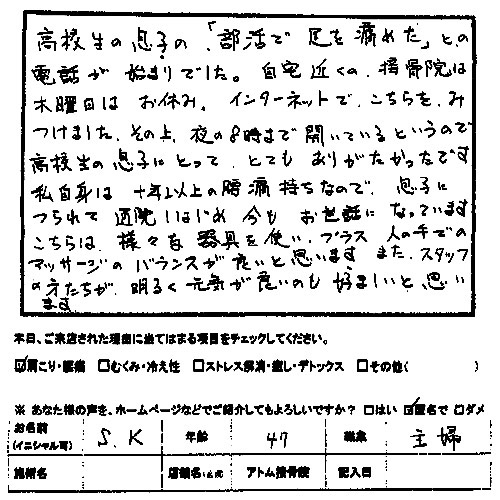 高校生の息子の「部活で足を痛めた」との
電話が始まりでした。自宅近くの、接骨院は
木曜日はお休み。インターネットで、こちらを、み
つけました。その上、夜の8時まで開いているというので
高校生の息子にとって、とてもありがたかったです
私自身は十年以上の腰痛持ちなので、息子に
つられて通院しはじめ今もお世話になっています
こちらは、様々な器具を使い、プラス人の手での
マッサージのバランスが良いと思います また、スタッフ
の方たちが、明るく元気が良いのも好ましいと思い
ます
本日、ご来店された理由に当てはまる項目をチェックしてください。
☑肩こり・腰痛 □むくみ・冷え性 □ストレス解消・癒し・デトックス □その他( )
※ あなた様の声を、ホームページなどでご紹介してもよろしいですか? □はい ☑匿名で □ダメ
お名前 (イニシャル可) S.K 年齢 47 職業 主婦
施術名 店舗名 アトム接骨院 記入日